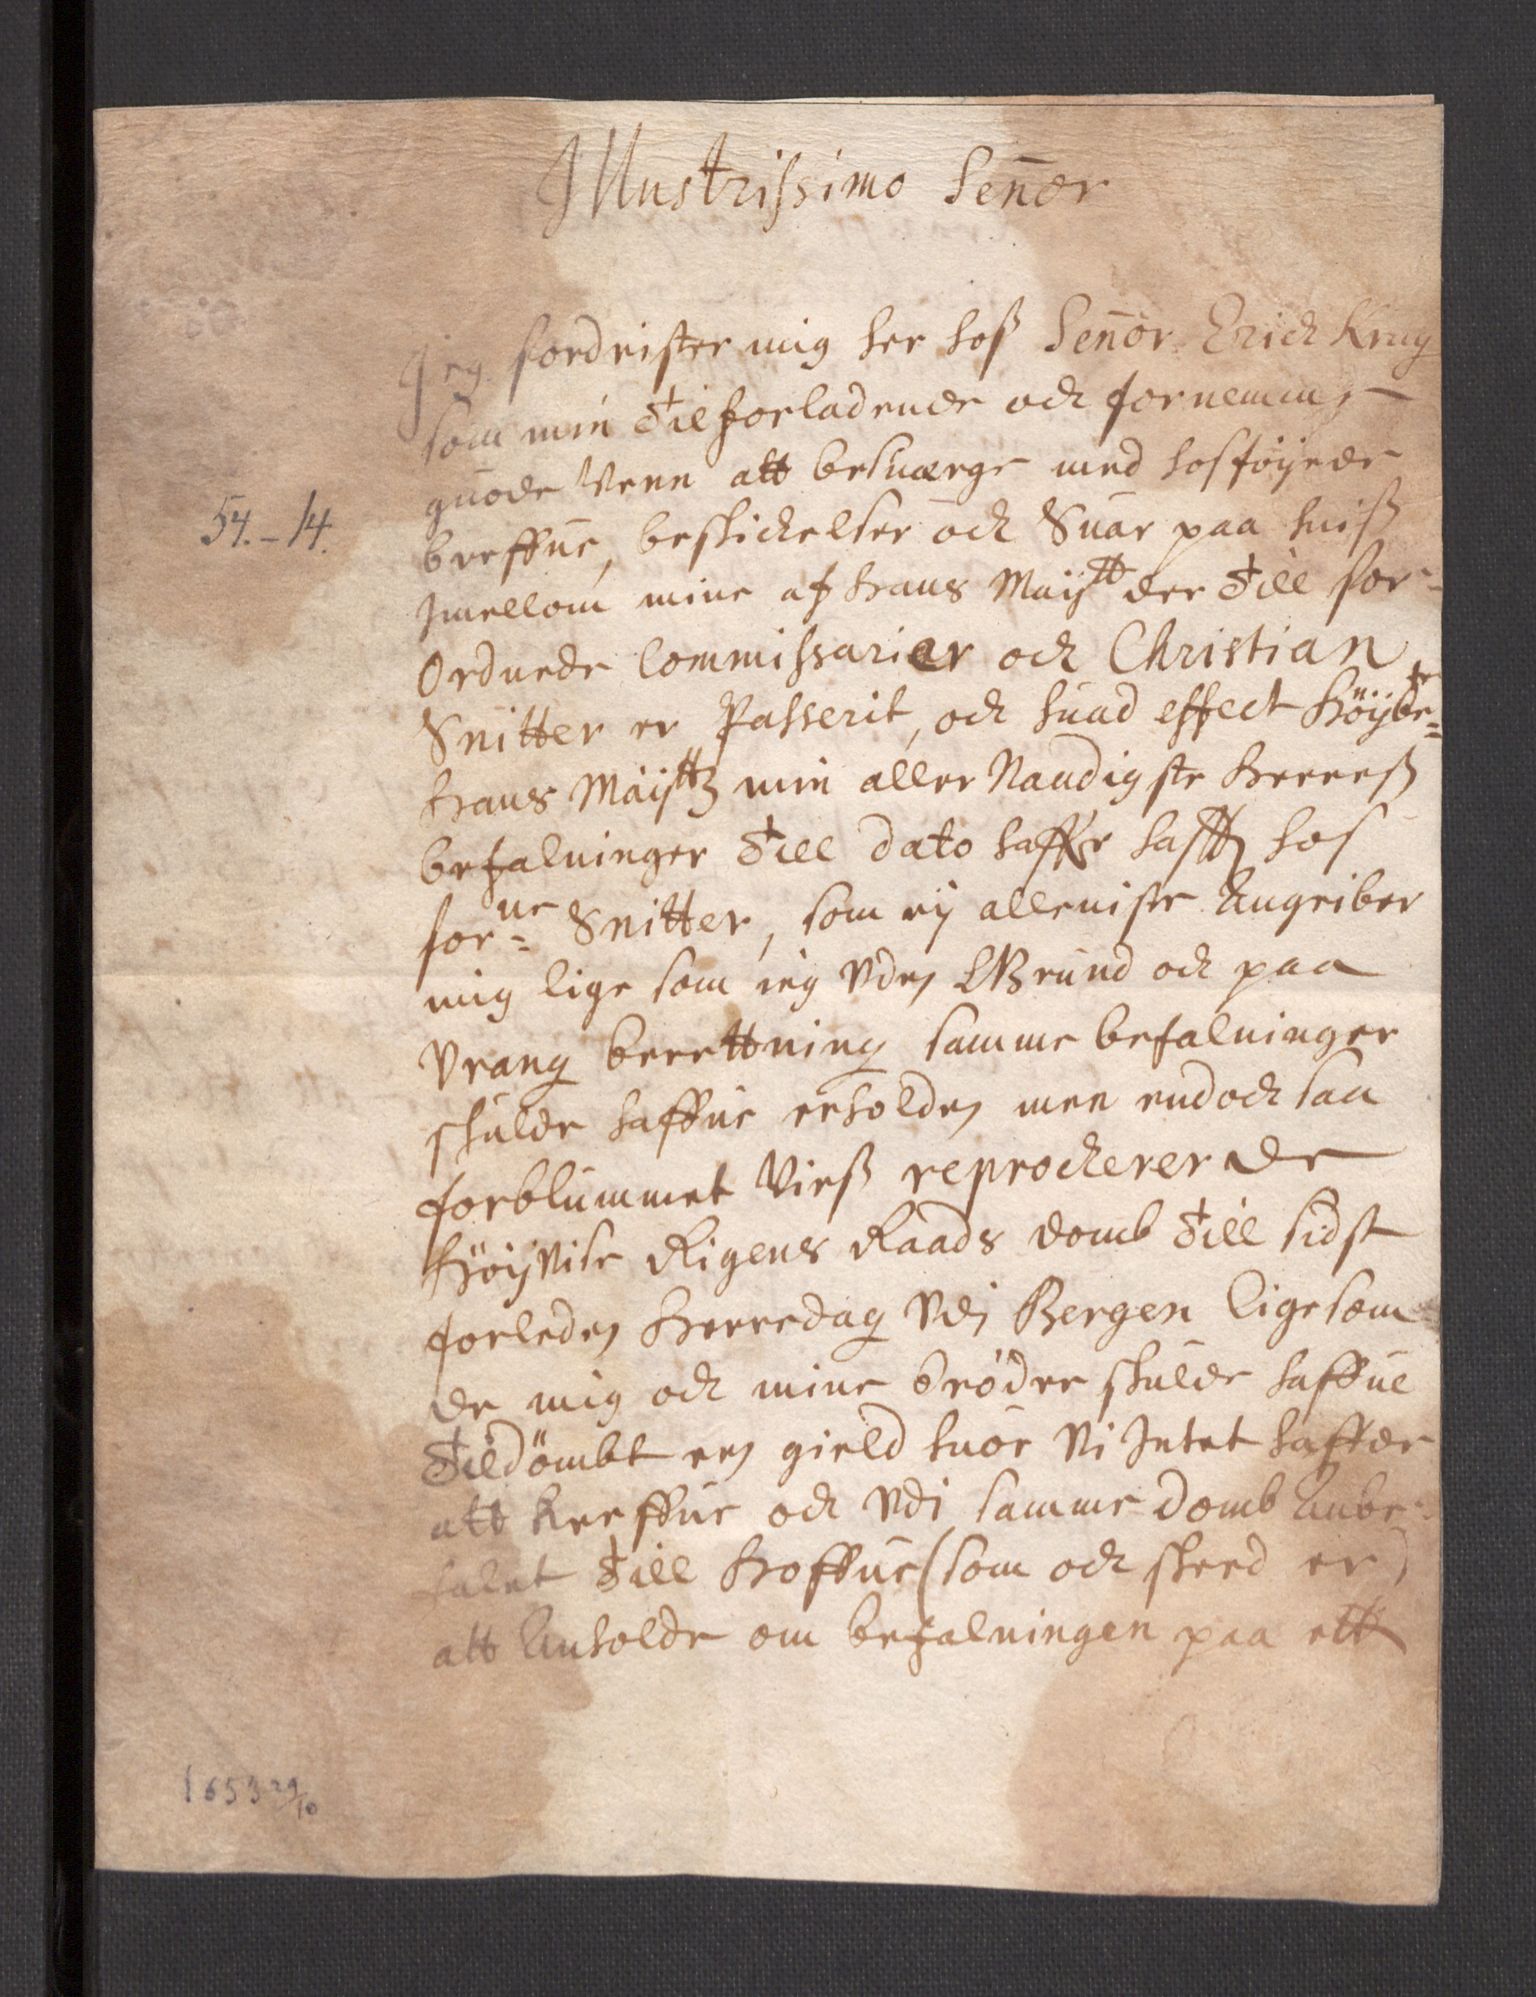 Illustrissimo Señor
Jeg fordrister mig her hoß Señor Erich Krag
som min Tilforladende och fornemmis-
guode Venn att besuærge med hosföyede
breffue, beskickelser och Suar paa huiß
Jmellom mine af Hans Maÿtt der Till for-
Ordnede Commissarier och Christian
Snitter er Passerit, och huad effect Höÿbe=te
Hans Maÿttz min aller Naadigste Herreß
befalninger Till dato haffr hafft hos
for=ne Snitter, som eÿ alleniste Angriber
mig lige som ieg Vden Grund och paa
Vrang berettning samme befalninger
skulde haffue erholden men endoch saa
forblummet Viiß reprocherer de
HöÿVise Rigens Raads domb Till sidst
forleden Herredag Vdi Bergen lige som
de mig och mine brödre skulde haffue
Tildömbt een gield huor Vi Intet haffde
att kreffue och Vdi samme domb Anbe-
falet Till Hoffue (som och skeed er)
att Anholde om befalningen paa ett
54.-14.
1653 29/10